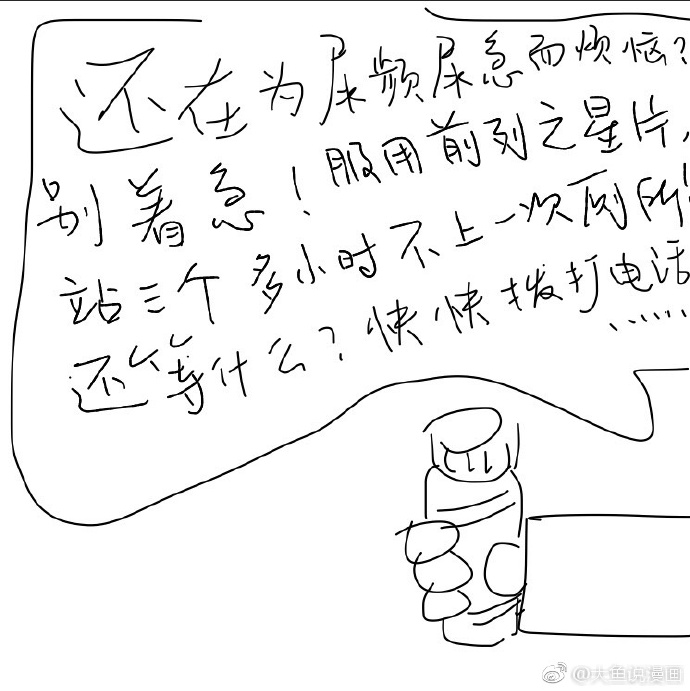 还在为尿频尿急而烦恼?
别着急!服用前列之星片,
站三个多小时不上一次厕所!
还等什么?快快拨打电话
......
@大鱼说漫画